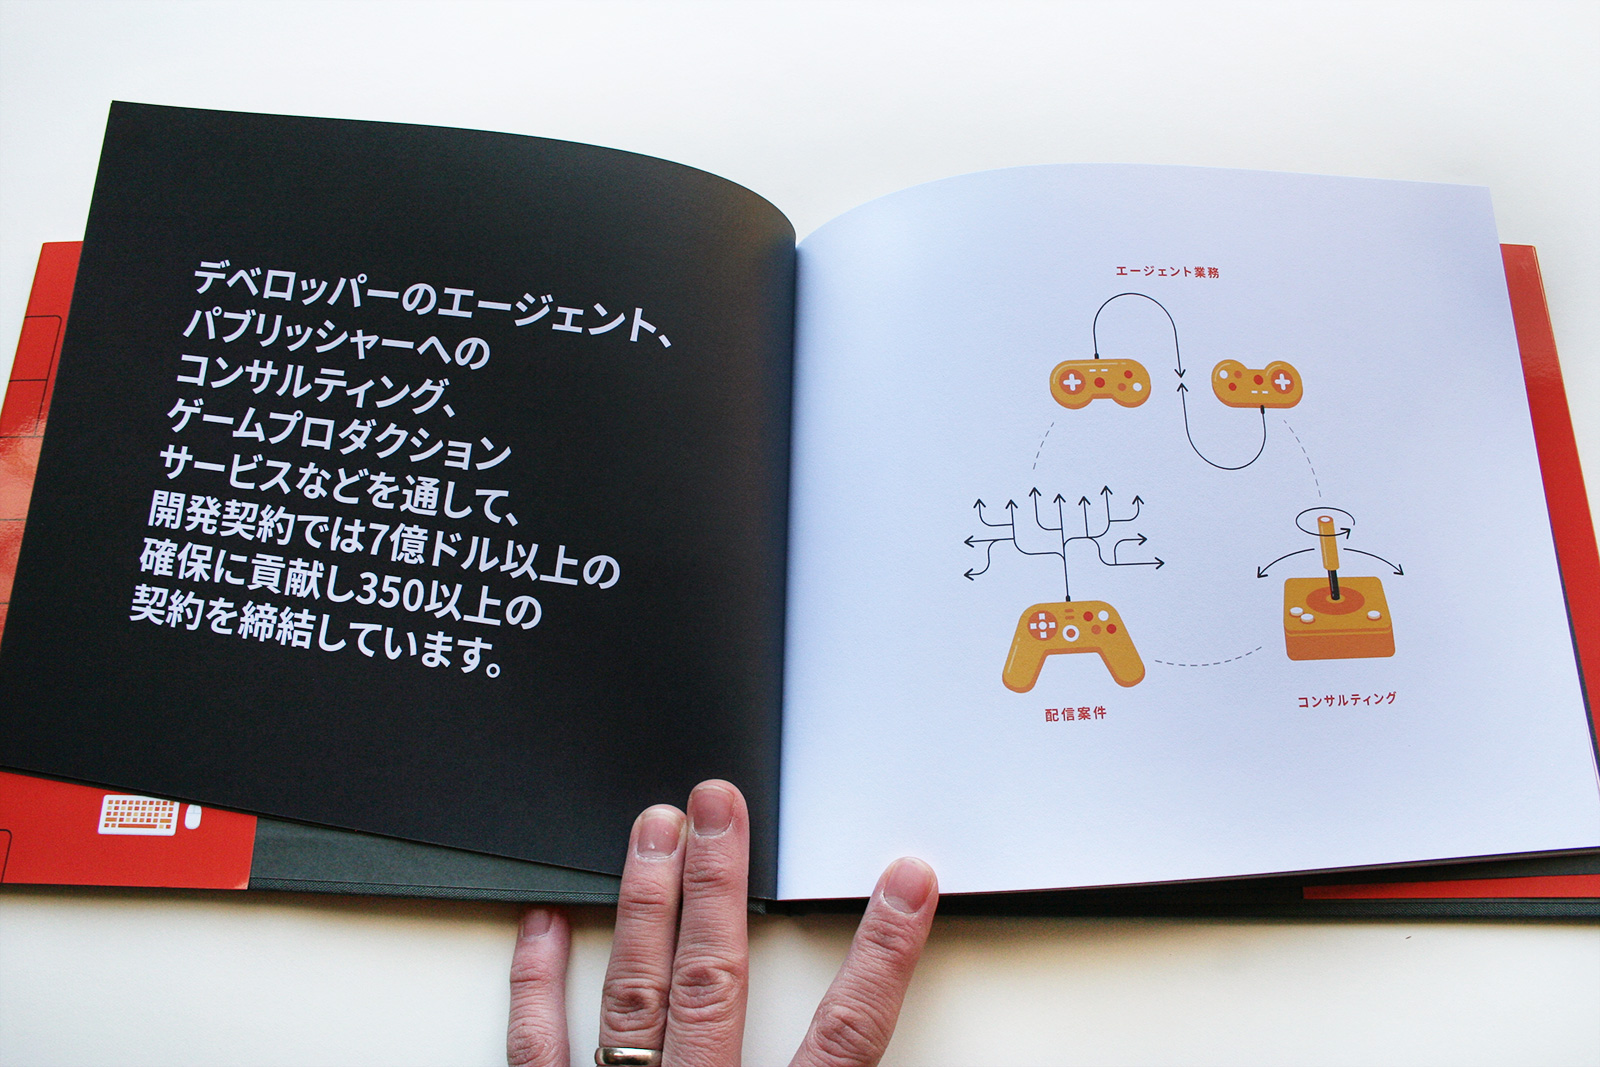 デベロッパーのエージェント、
パブリッシャーへの
コンサルティング、
ゲームプロダクション
サービスなどを通して、
開発契約では7億ドル以上の
確保に貢献し350以上の
契約を締結しています。
エージェント業務
配信案件
コンサルティング